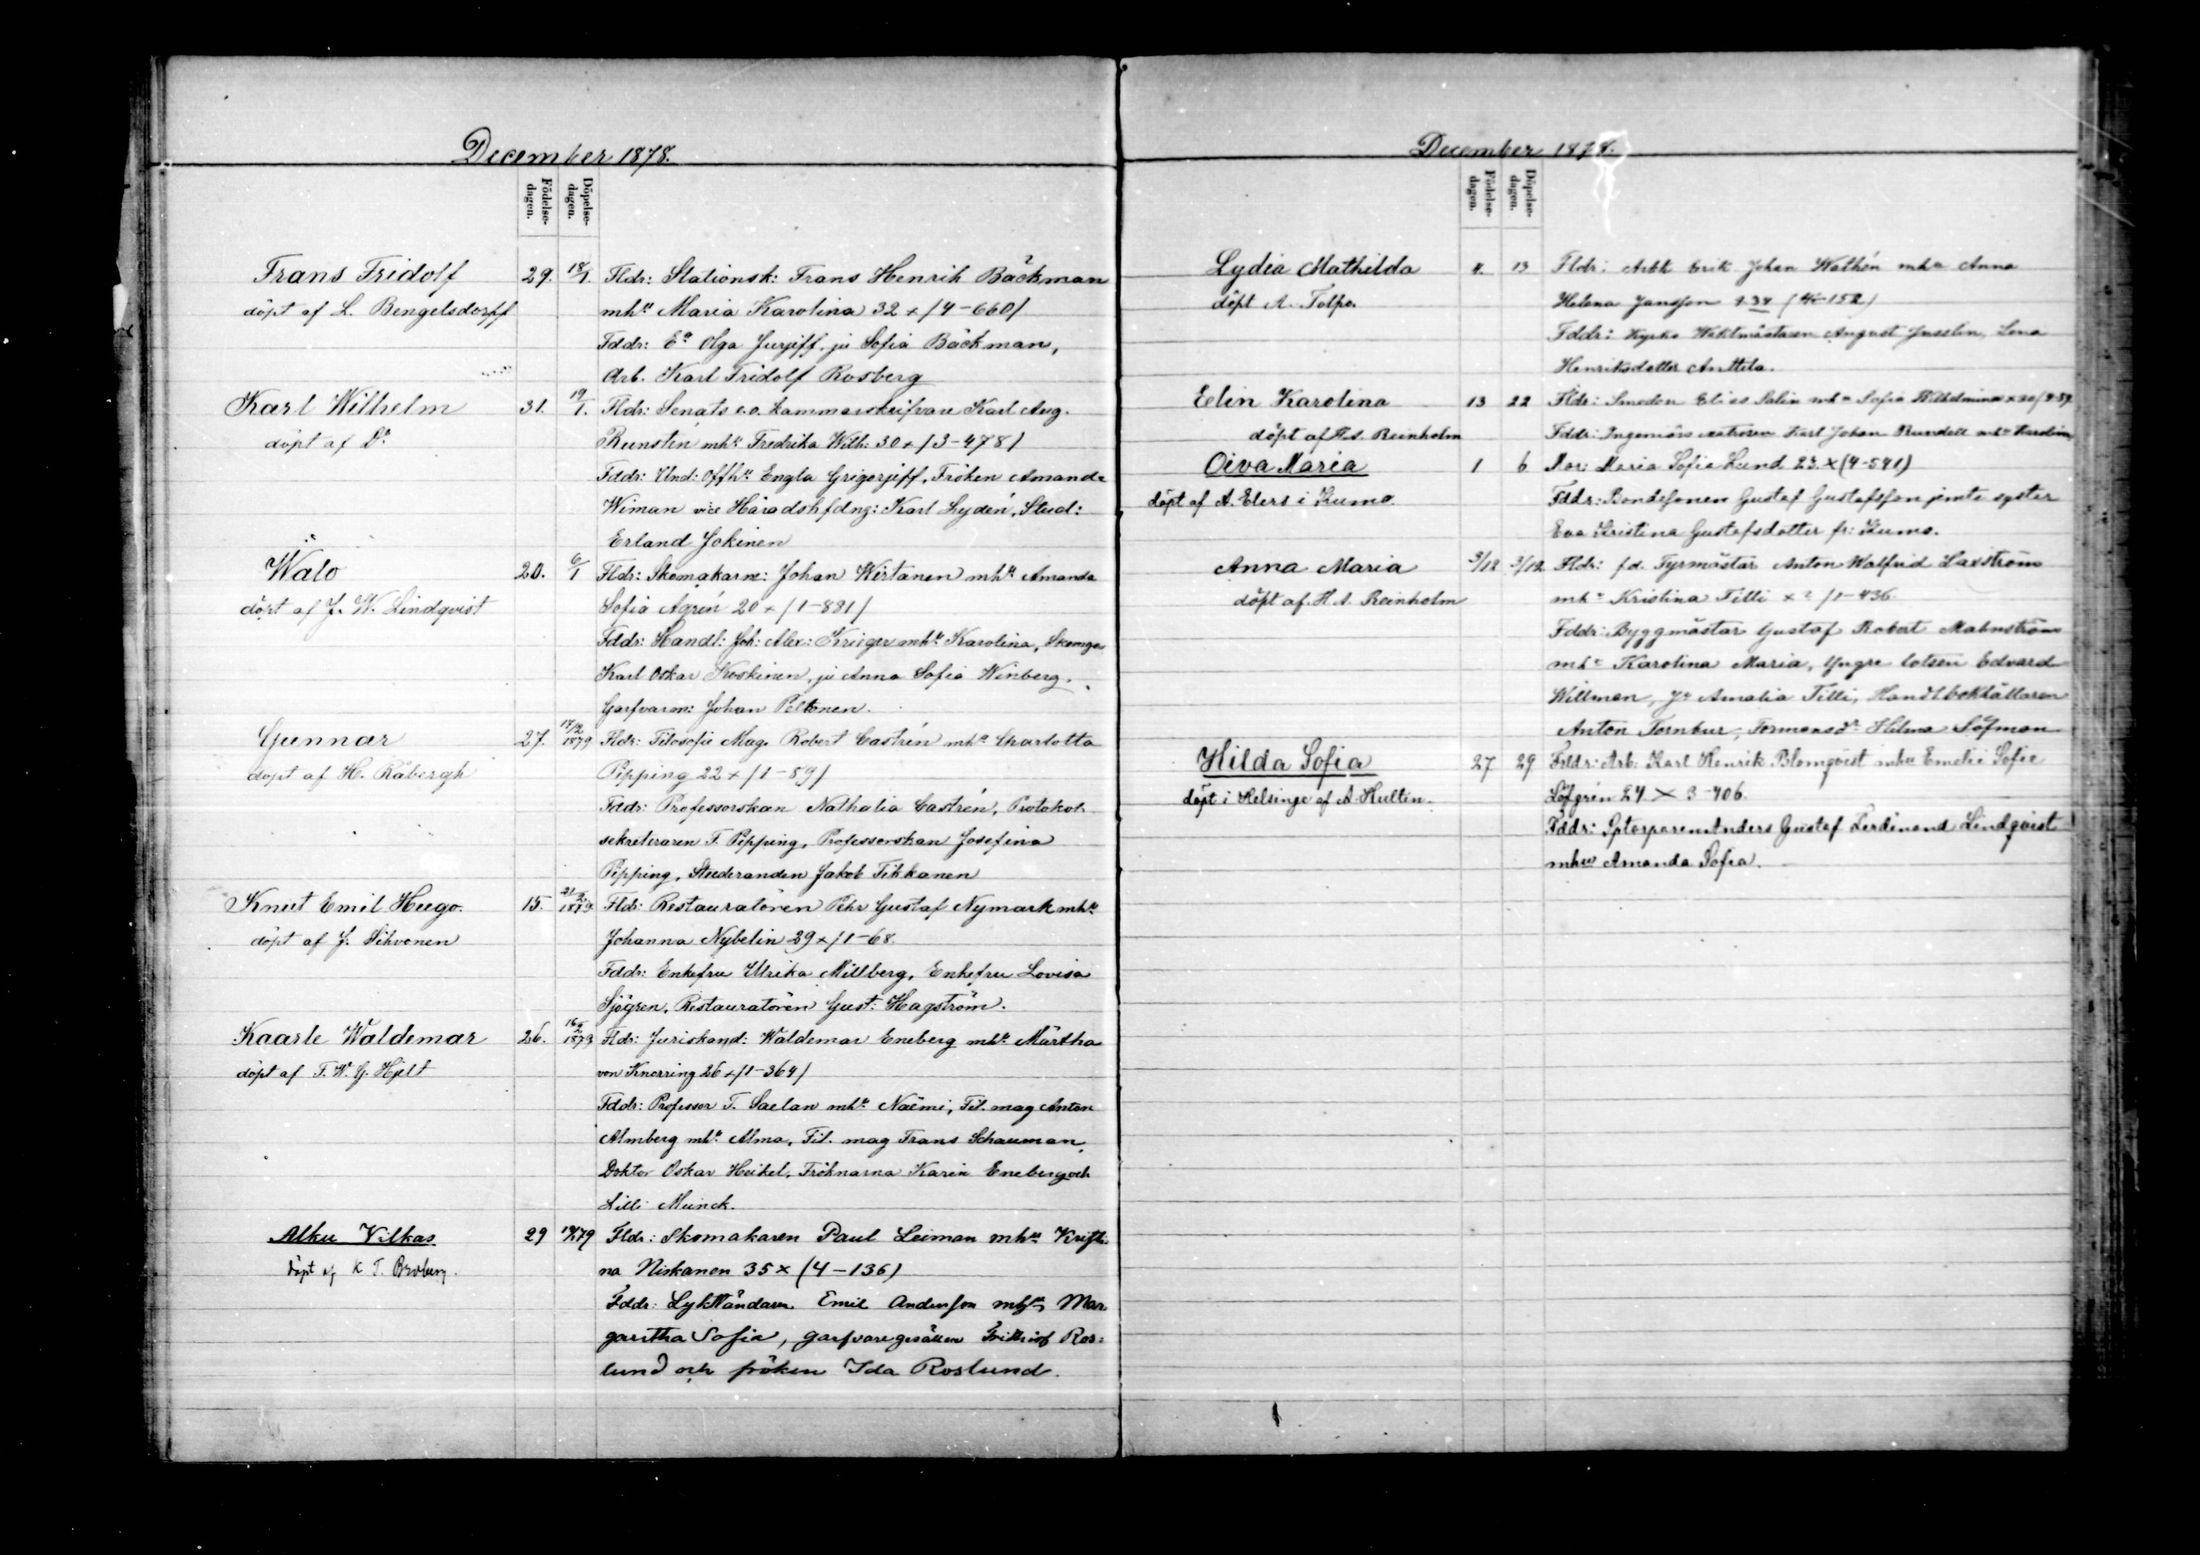 December 1878.
Födelse-
dagen.
Döpelse-
dagen.
Frans Fridolf 29. 18/1. Fldr: Stationsk: Frans Henrik Bäckman
döpt af L. Bengelsdorff mh:u Maria Karolina 32 + /4-660/
Fddr: E:a Olga Jurjeff, ju Sofia Bäckman,
Arb. Karl Fridolf Rosberg
Karl Wilhelm 31. 19/1. Fldr: Senats e.o. kammarskrifvare Karl Aug.
döpt af D:o Runsten mh:u Fredrika Wilh: 30 + /3-478/
Fddr: Und: Offh:u Engla Grigorjeff, Fröken Amanda
Wiman vice Häradshfdng: Karl Lydén, Stud:
Erland Jokinen
Walo 20. 6/1 Fldr: Skomakarm: Johan Wirtanen mh:u Amanda
döpt af J. W. Lindqvist Sofia Ågrén 20 + /1-881/
Fddr: Handl: Joh: Alex: Krüger mh:u Karolina, Skomgn
Karl Oskar Koskinen, ju Anna Sofia Winberg,
Garfvarm: Johan Peltonen.
Gunnar 27. 17/2 1879 Fldr: Filosofie Mag. Robert Castrén mh:u Charlotta
döpt af H. Råbergh Pipping 22 + /1-59/
Fddr: Professorskan Nathalia Castrén, Protokoll
sekreteraren T. Pipping, Professorskan Josefina
Pipping, Studeranden Jakob Tikkanen
Knut Emil Hugo. 15. 21/2 1879 Fldr: Restauratören Pehr Gustaf Nymark mh:u
döpt af J. Sihvonen Johanna Nybelin 29 + /1-68.
Fddr: Enkefru Ulrika Millberg, Enkefru Lovisa
Sjögren, Restauratören Gust: Hagström.
Kaarle Waldemar 26. 16/2 1879 Fldr: Juriskand: Waldemar Eneberg mh:u Märtha
döpt af F. W. G. Hjelt von Knorring 26 + /1-364/
Fddr: Professor T. Saelan mh:u Naëmi, Fil. mag Anton
Almberg mh:u Alma, Fil. mag Frans Schauman,
Doktor Oskar Heikel, Fröknarna Karin Eneberg och
Lilli Munck.
Alku Vilkas 29 79 Fldr: Skomakaren Paul Leiman mh:u Kristi
döpt af K T. Broberg. na Niskanen 35 x (4-136)
Fddr: Lykttändarn Emil Andersson mh:u Mar
garitha Sofia, garfvaregesällen Fridolf Ros:
lund och fröken Ida Roslund.
December 1878.
Födelse-
dagen.
Döpelse-
dagen.
Lydia Mathilda 4. 13 Fldr: Arbk Erik Johan Wathén mh:u Anna
döpt A. Tolpo. Helena Jansson + 34 (4-152)
Fddr: Kyrko Waktmästaren August Jusslin, Lena
Henriksdotter Anttila.
Elin Karolina 13 22 Fldr: Smeden Elias Salin mh:u Sofia Wilhelmina x
döpt af H.A. Reinholm Fddr: Ingeniörs Karl Johan Rundell mh:u Karolina
Oiva Maria 1 6 Mor: Maria Sofia Lund 23. x (4-541)
döpt af A. Elers i Kumo. Fddr: Bondesonen Gustaf Gustafsson jemte syster
Eva Kristina Gustafsdotter fr: Kumo.
Anna Maria 3/12 3/12 Fldr: f.d. Fyrmästar Anton Walfrid Laxström
döpt af. H A. Reinholm mh:u Kristina Tilli x ? /1-436
Fddr: Byggmästar Gustaf Robert Malmström
mh:u Karolina Maria, Yngre lotsen Edvard
Willman, J:u Amalia Tilli, Handl.bokhållaren
Anton Tornbur, Formansd:r Hilma Löfman
Hilda Sofia 27 29 Frldr: Arb. Karl Henrik Blomqvist mhu Emelie Sofia
döpt i Helsinge af A. Hultin. Löfgrén 27 x 3-406.
Fddr: Sptorparen Anders Gustaf Ferdinand Lindqvist
mhu Amanda Sofia.